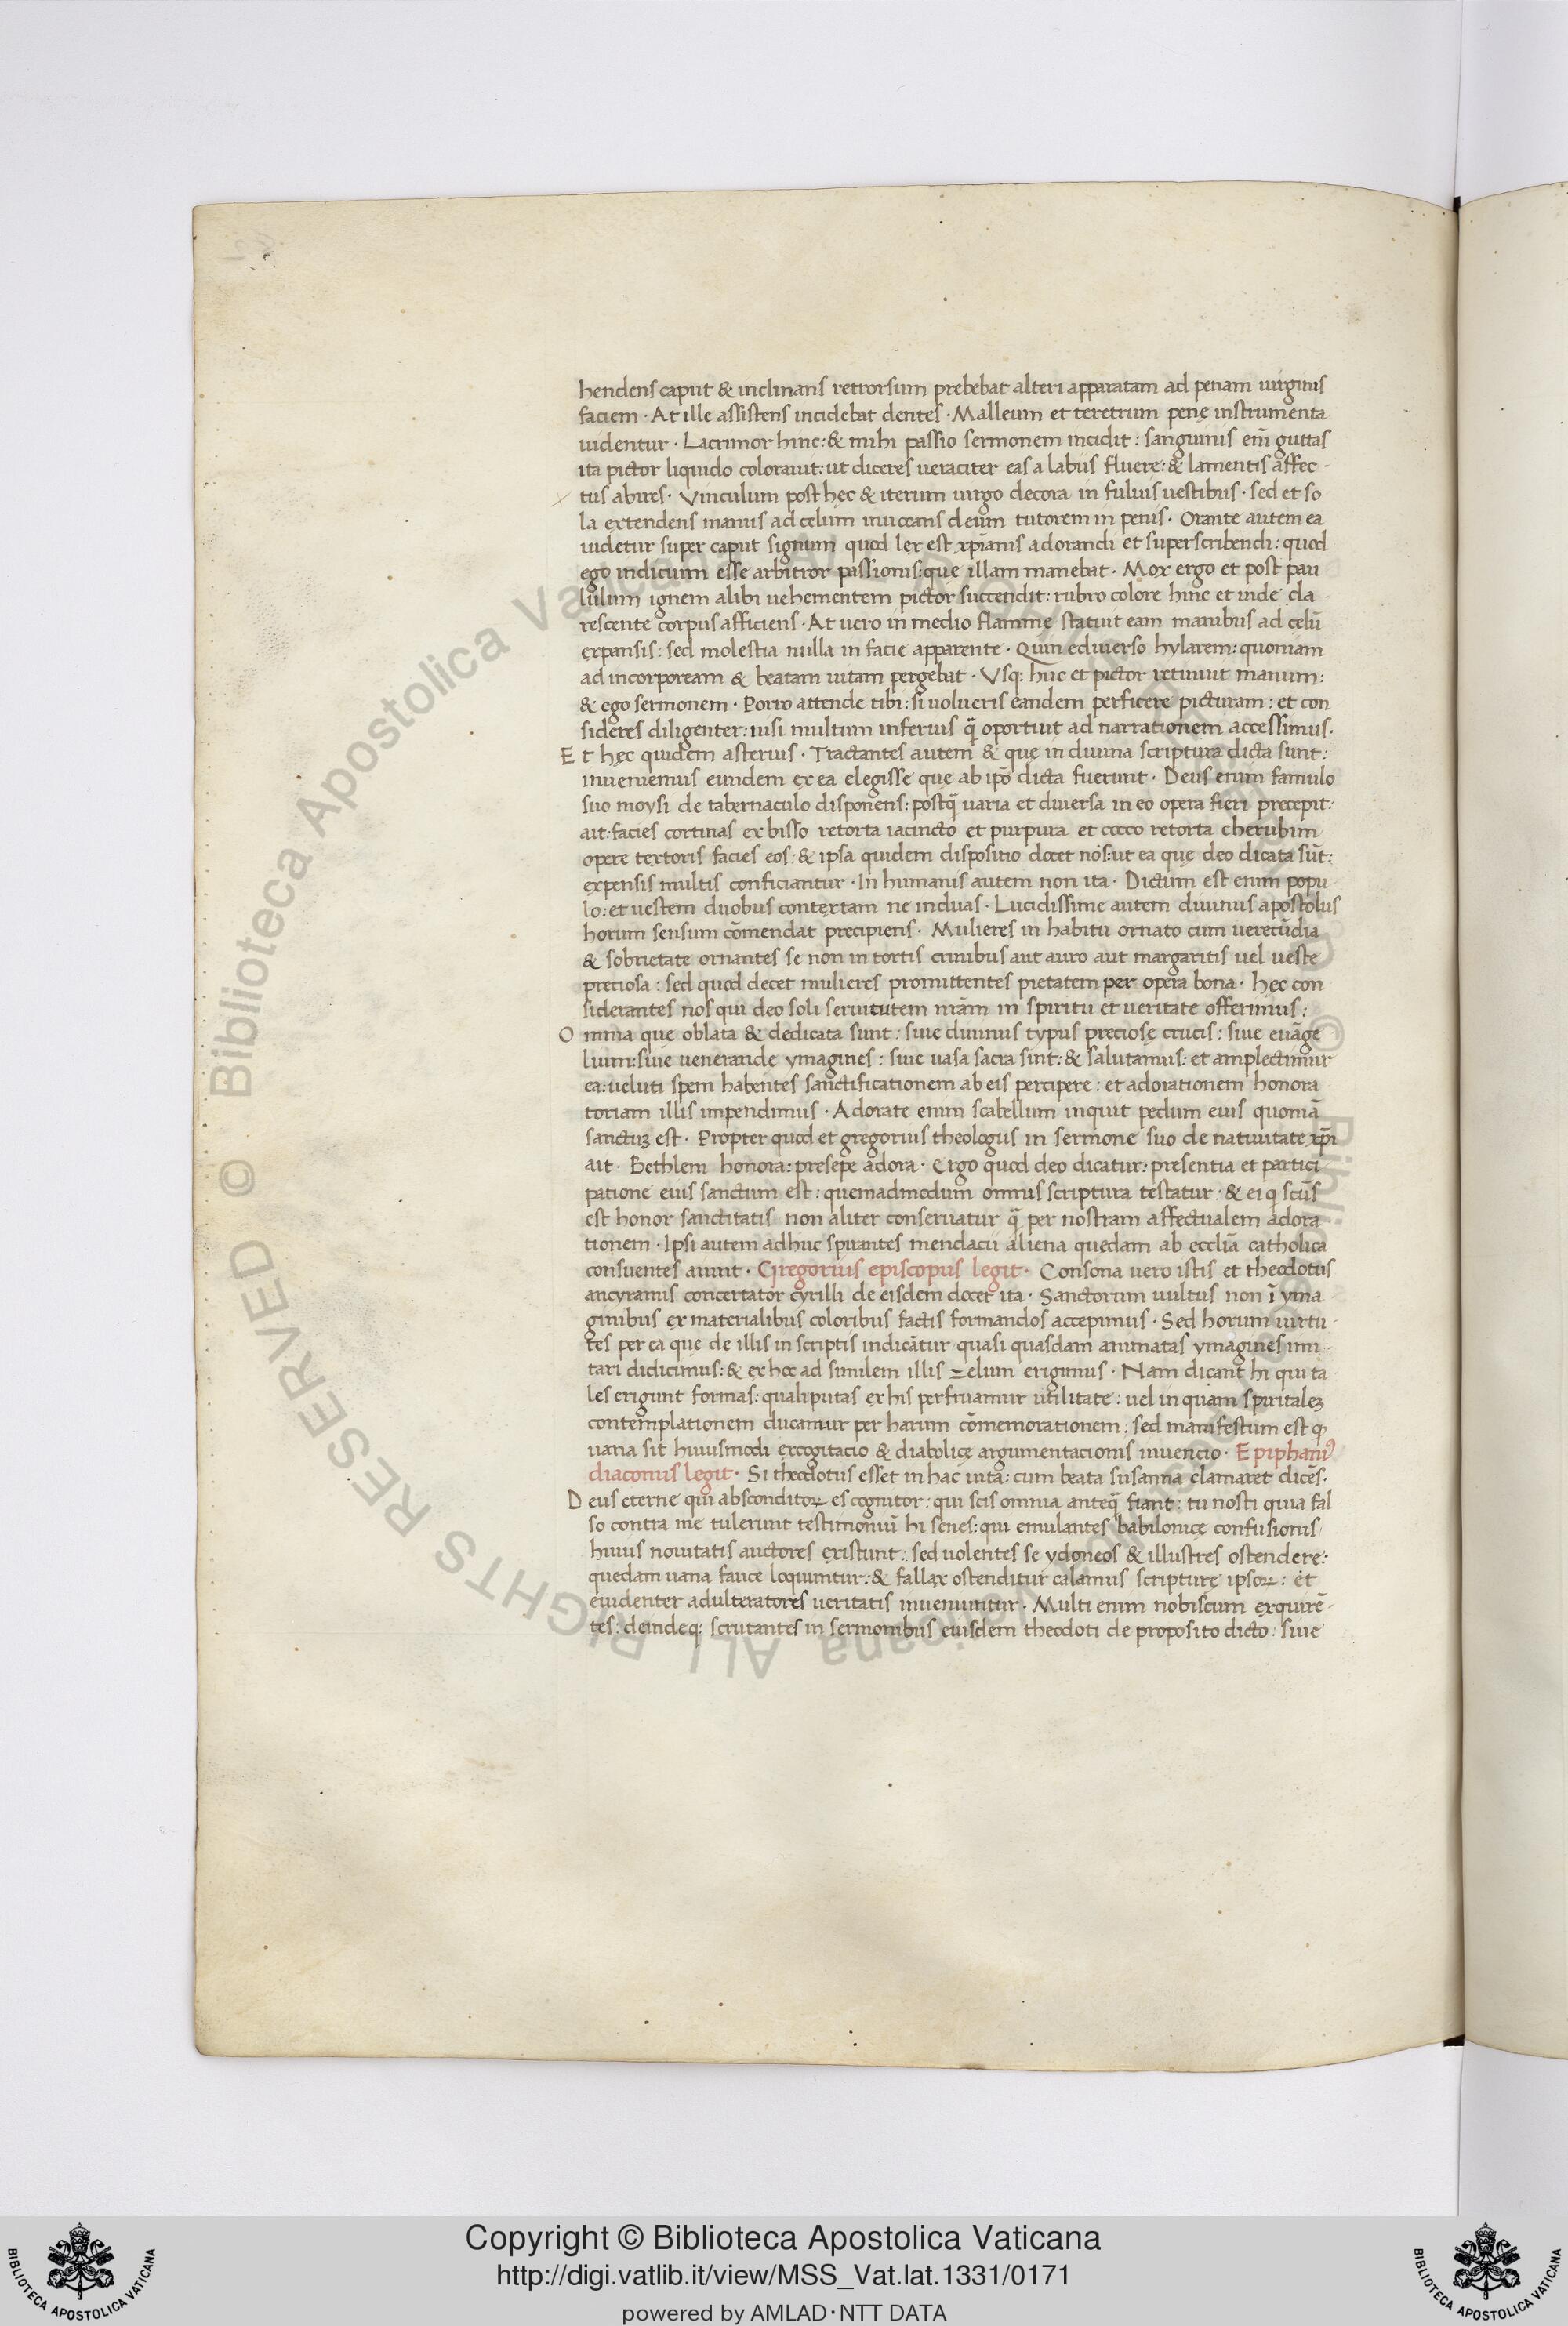 hendens caput & inclinans retrorsum prebebat alteri apparatam ad penam uirginis
faciem · At ille assistens incidebat dentes · Malleum et teretrum penę instrumenta
uidentur · Lacrimor hinc: & mihi passio sermonem incidit: sanguinis em̅ guttas
ita pictor liquido colorauit: ut diceres ueraciter eas a labiis fluere: & lamentis affec-
tus abires · Vinculum post hec & iterum uirgo decora in fuluis uestibus · sed et so
la extendens manus ad celum inuocans deum tutorem in penis · Orante autem ea
uidetur super caput signum quod lex est xp̅ianis adorandi et superscribendi: quod
ego indicium esse arbitror passionis: que illam manebat · Mox ergo et post pau
lulum ignem alibi uehementem pictor succendit: rubro colore hinc et inde cla
rescente corpus afficiens · At uero in medio flamme statuit eam manibus ad celu̅
expansis: sed molestia nulla in facie apparente · Quin ediuerso hylarem: quoniam
ad incorpoream & beatam uitam pergebat · Vsq: huc et pictor retinuit manum:
& ego sermonem · Porro attende tibi: si uolueris eandem perficere picturam: et con
sideres diligenter: nisi multum inferius q̅ oportuit ad narrationem accessimus.
Et hęc quidem asterius · Tractantes autem & que in diuina scriptura dicta sunt:
inueniemus eundem ex ea elegisse que ab ip̅o dicta fuerunt · Deus enim famulo
suo moysi de tabernaculo disponens: postq̅ uaria et diuersa in eo opera fieri precepit:
ait: facies cortinas ex bisso retorta iacincto et purpura et cocco retorta cherubim
opere textoris facies eos: & ipsa quidem dispositio docet nos: ut ea quę deo dicata su̅t:
expensis multis conficiantur · In humanis autem non ita · Dictum est enim popu
lo: et uestem duobus contextam ne induas · Lucidissime autem diuinus apostolus
horum sensum co̅mendat precipiens · Mulieres in habitu ornato cum uerecu̅dia
& sobrietate ornantes se non in tortis crinibus aut auro aut margaritis uel ueste
preciosa: sed quod decet mulieres promittentes pietatem per opera bona · hęc con
siderantes nos qui deo soli seruitutem nr̅am in spiritu et ueritate offerimus:
Omnia que oblata & dedicata sunt: siue diuinus typus preciosę crucis: siue eua̅ge
lium: siue uenerande ymagines: siue uasa sacra sint: & salutamus: et amplectimur
ca: ueluti spem habentes sanctificationem ab eis percipere: et adorationem honora
toriam illis impendimus · Adorate enim scabellum inquit pedum eius quonia̅
sanctuꝫ est · Propter quod et gregorius theologus in sermone suo de natiuitate xp̅i
ait · Bethlem honora: presepe adora · Ergo quod deo dicatur: presentia et partici
patione eius sanctum est: quemadmodum omnis scriptura testatur: & ei q scu̅s
est honor sanctitatis non aliter conseruatur q̅ per nostram affectualem adora
tionem · Ipsi autem adhuc spirantes mendacii aliena quedam ab eccl̅ia catholica
consuentes aiunt · Gregorius episcopus legit · Consona uero istis et theodotus
ancyranus concertator cyrilli de eisdem docet ita · Sanctorum uultus non i̅ yma
ginibus ex materialibus coloribus factis formandos accepimus · Sed horum uirtu-
tes per ea que de illis in scriptis indica̅tur quasi quasdam animatas ymagines imi-
tari didicimus: & ex hoc ad similem illis zelum erigimus · Nam dicant hi qui ta
les erigunt formas: quali putas ex his perfruamur utilitate: uel in quam spiritaleꝫ
contemplationem ducamur per harum co̅memorationem: sed manifestum est ꝙ
uana sit huiusmodi excogitacio & diabolicę argumentacionis inuencio · Epiphaniꝰ
diaconus legit · Si theodotus esset in hac uita: cum beata susanna clamaret dice̅s.
Deus eterne qui absconditoꝝ es cognitor: qui scis omnia anteq̅ fiant: tu nosti quia fal
so contra me tulerunt testimoniu̅ hi senes: qui emulantes babilonicę confusionis
huius nouitatis auctores existunt: sed uolentes se ydoneos & illustres ostendere:
quedam uana fauce loquuntur: & fallax ostenditur calamus scripturę ipsoꝝ: et
euidenter adulteratores ueritatis inueniuntur · Multi enim nobiscum exquire̅-
tes: deindeq: scrutantes in sermonibus eiusdem theodoti de proposito dicto: siue
Copyright © Biblioteca Apostolica Vaticana
http://digi.vatlib.it/view/MSS_Vat.lat.1331/0171
powered by AMLAD·NTT DATA
BIBLIOTECA APOSTOLICA VATICANA
BIBLIOTECA APOSTOLICA VATICANA
© Biblioteca Apostolica Vaticana ALL RIGHTS RESERVED